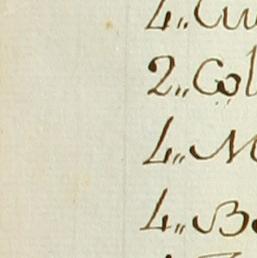 4,, Cu
2,, Col
4,, M
4,, B